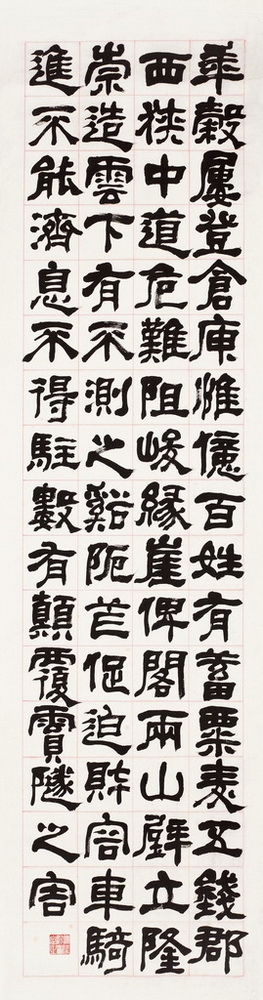 年穀屢登倉庾惟億百姓有蓄粟麥五錢郡
西狹中道危難阻峻緣崖俾閣兩山壁立隆
崇造雲下有不測之谿阨笮促迫財容車騎
進不能濟息不得駐數有顛覆霣隧之害